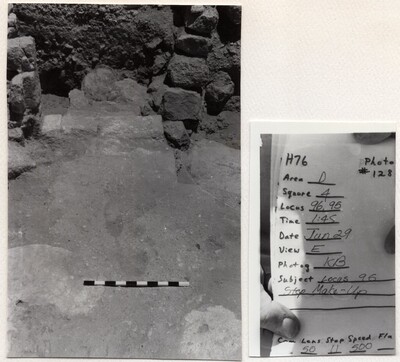 H76
Photo
# 128
Area D
Square 4
Locus 96, 95
Time 1:45
Date Jun 29
View E
Photog KB
Subject Locus 95
Step Make-Up
Cam Lens Stop Speed Fla
50 11 500